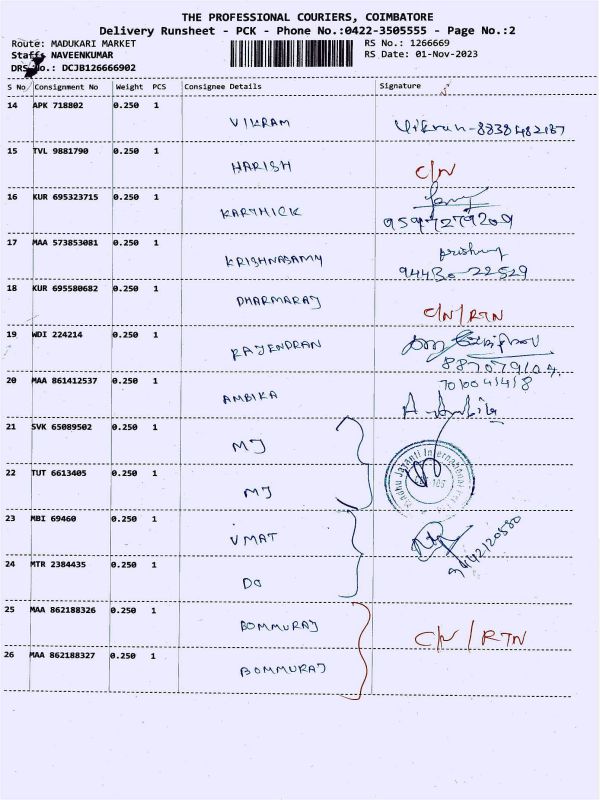 THE PROFESSIONAL COURIERS, COIMBATORE
Delivery Runsheet - PCK - Phone No.:0422-3505555 - Page No.:2
Route: MADUKARI MARKET RS No.: 1266669
Staff: NAVEENKUMAR RS Date: 01-Nov-2023
DRS No.: DCJB126666902
S No Consignment No Weight PCS Consignee Details Signature
14 APK 718802 0.250 1 VIKRAM Vikram-8838482187
15 TVL 9881790 0.250 1 HARISH C/N
16 KUR 695323715 0.250 1 KARTHICK
9597279209
17 MAA 573853081 0.250 1 KRISHNASAMY
94430-22529
18 KUR 695580682 0.250 1 DHARMARAJ C/N/RTN
19 WDI 224214 0.250 1 RAJENDRAN
20 MAA 861412537 0.250 1 AMBIKA A. Ambika
21 SVK 65089502 0.250 1 MJ
22 TUT 6613405 0.250 1 MJ
23 MBI 69460 0.250 1 VMAT 9442120580
24 MTR 2384435 0.250 1 DO
25 MAA 862188326 0.250 1 BOMMURAJ C/N/RTN
26 MAA 862188327 0.250 1 BOMMURAJ